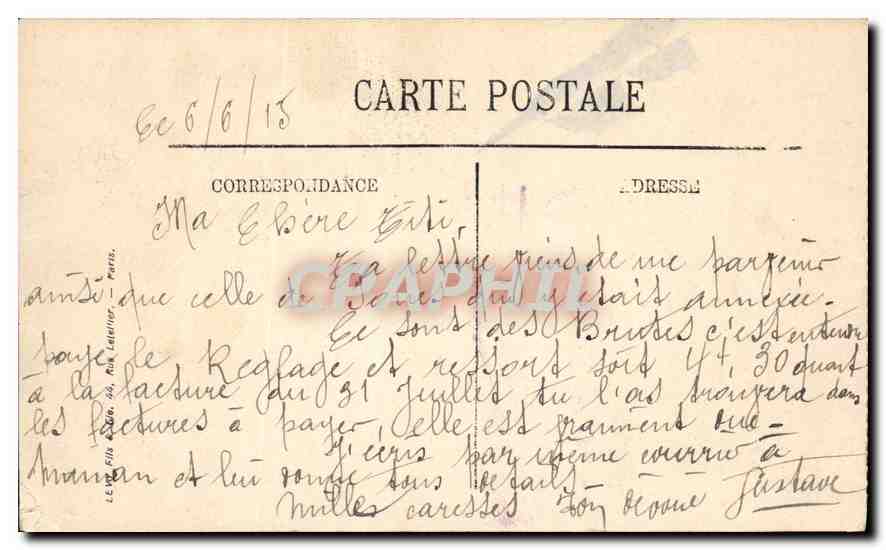 CARTE POSTALE
Ce 6/6/15
CORRESPONDANCE
ADRESSE
Ma Chère Titi,
Ta lettre viens de me parvenir
ainsi que celle de Jones qui y était annexée.
Ce sont des Brutes c'est entendu
paye le Reglage et ressort soit 4f,30 quant
à la facture du 31 Juillet tu l'as trouvera dans
les factures à payer, elle est vraiment due.
J'écris par même courrier à
maman et lui donne tous details.
Milles caresses Ton dévoué Gustave
LEVY Fils & Cie. 44, Rue Letellier. — Paris.
CPAPHIL